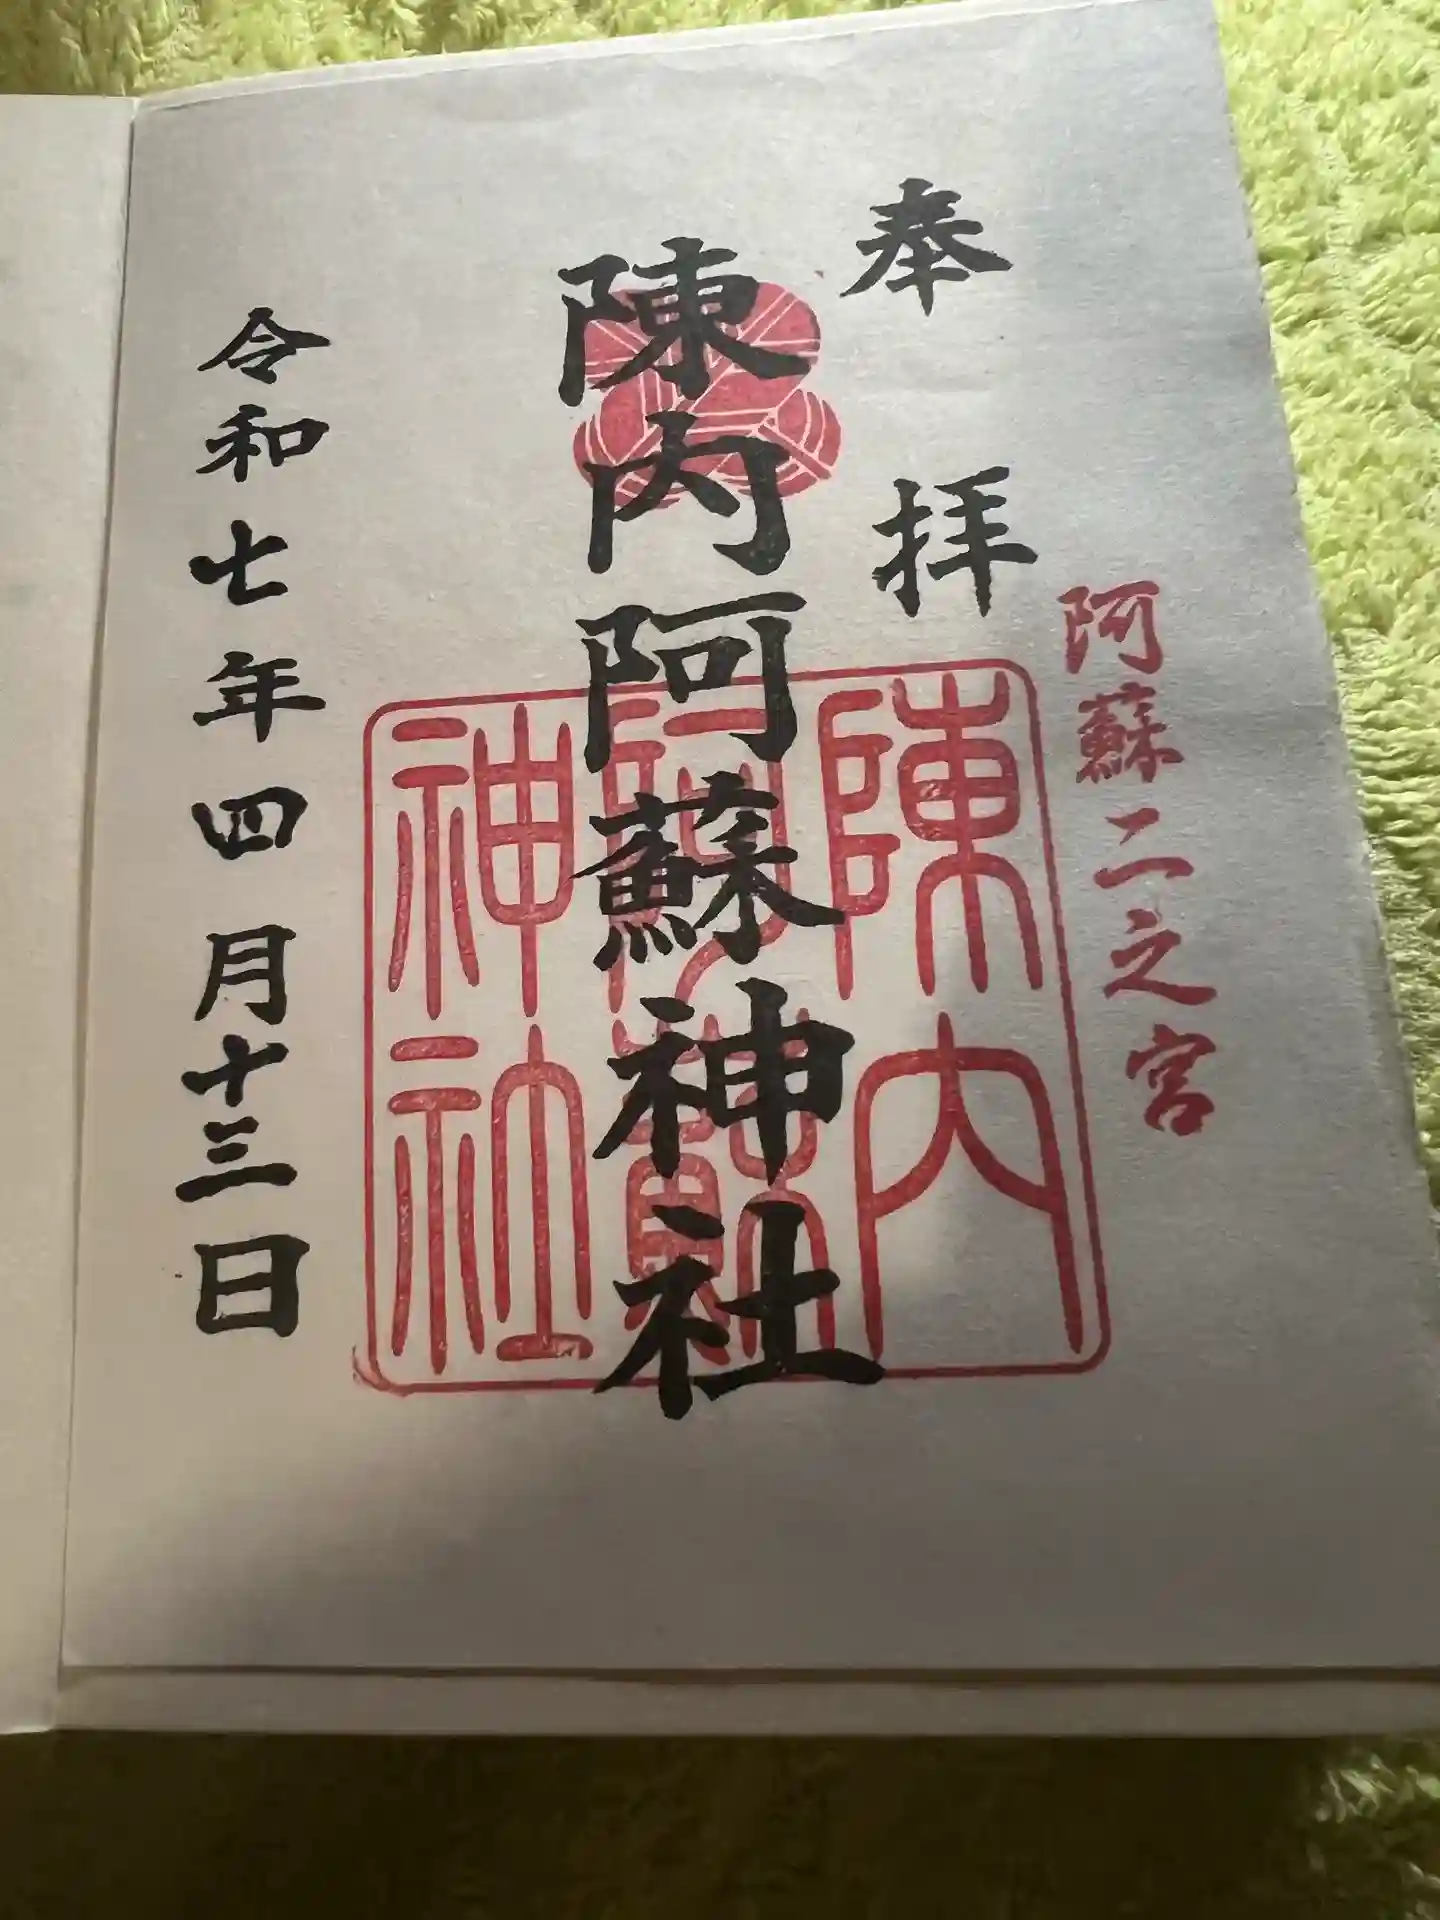 阿蘇二之宮
奉拝
陳内阿蘇神社
陳内
阿蘇
神社
令和七年四月十三日